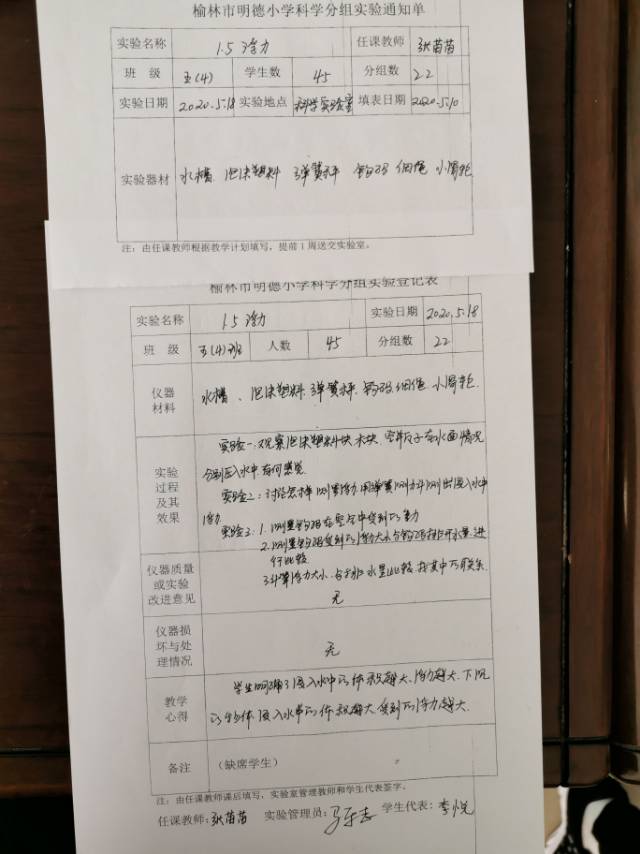 榆林市明德小学科学分组实验通知单
实验名称 1.5 浮力 任课教师 张苗苗
班 级 五(4) 学生数 45 分组数 22
实验日期 2020.5.18 实验地点 科学实验室 填表日期 2020.5.10
实验器材 水槽 泡沫塑料 弹簧秤 钩码 细绳 小滑轮
注:由任课教师根据教学计划填写,提前1周送交实验室。
榆林市明德小学科学分组实验登记表
实验名称 1.5 浮力 实验日期 2020.5.18
班 级 五(4)班 人数 45 分组数 22
仪器
材料
水槽、泡沫塑料.弹簧秤.钩码.细绳.小滑轮.
实验
过程
及其
效果
实验一:观察泡沫塑料块.木块.空瓶子在水面情况
分别压入水中有何感觉.
实验2:讨论怎样测量浮力.用弹簧测力计测出浸入水中
浮力
实验3:1.测量钩码在空气中受到的重力
2.测量钩码受到的浮力大小与钩码排开水量.进
行比较
3.计算浮力大小.与排水量比较.找其中的关系.
仪器质量
或实验
改进意见
无
仪器损
坏与处
理情况
无
教学
心得
学生明确了浸入水中的体积越大、浮力越大.下沉
的物体浸入水中的体积越大.受到的浮力越大.
备注 (缺席学生)
注:由任课教师课后填写,实验室管理教师和学生代表签字。
任课教师:张苗苗 实验管理员: 学生代表:李悦